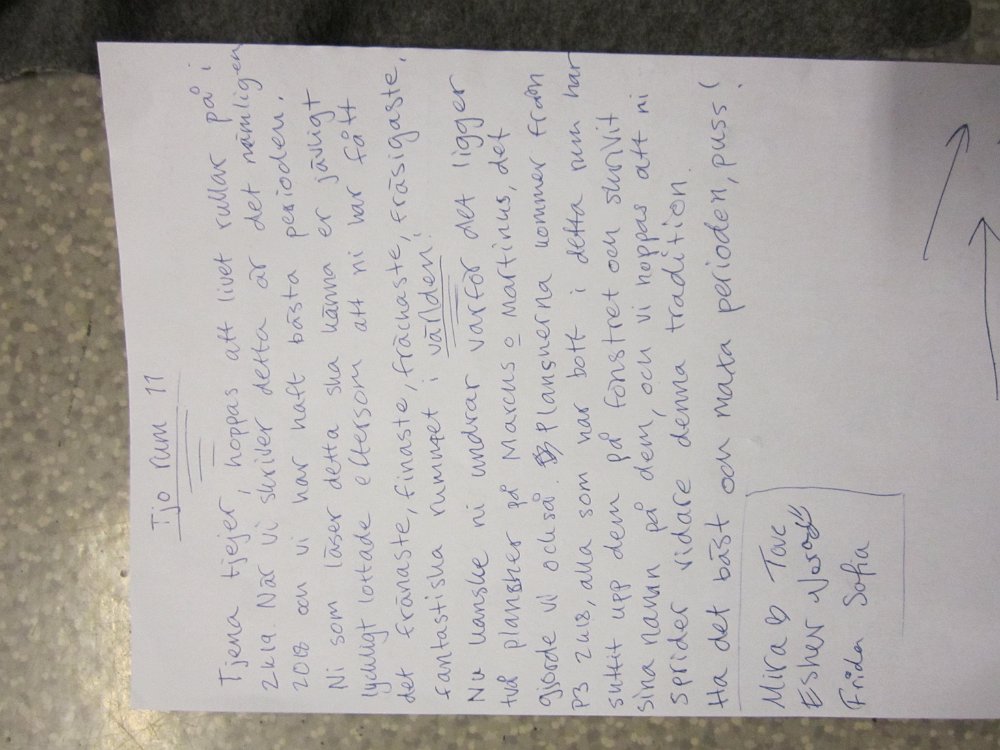 Tjo rum 11
Tjena tjejer, hoppas att livet rullar på i
2k19. När vi skriver detta är det nämligen
2018 och vi har haft bästa perioden.
Ni som läser detta ska känna er jävligt
lyckligt lottade eftersom att ni har fått
det fränaste, finaste, frächaste, fräsigaste,
fantastiska rummet i världen!
Nu kanske ni undrar varför det ligger
två plansher på Marcus o Martinus, det
gjorde vi också. Planscherna kommer från
P3 2k18, alla som har bott i detta rum har
suttit upp dem på fönstret och skrivit
sina namn på dem, och vi hoppas att ni
sprider vidare denna tradition.
Ha det bäst och maxa perioden, puss!
Mira Tove
Esher
Frida Sofia